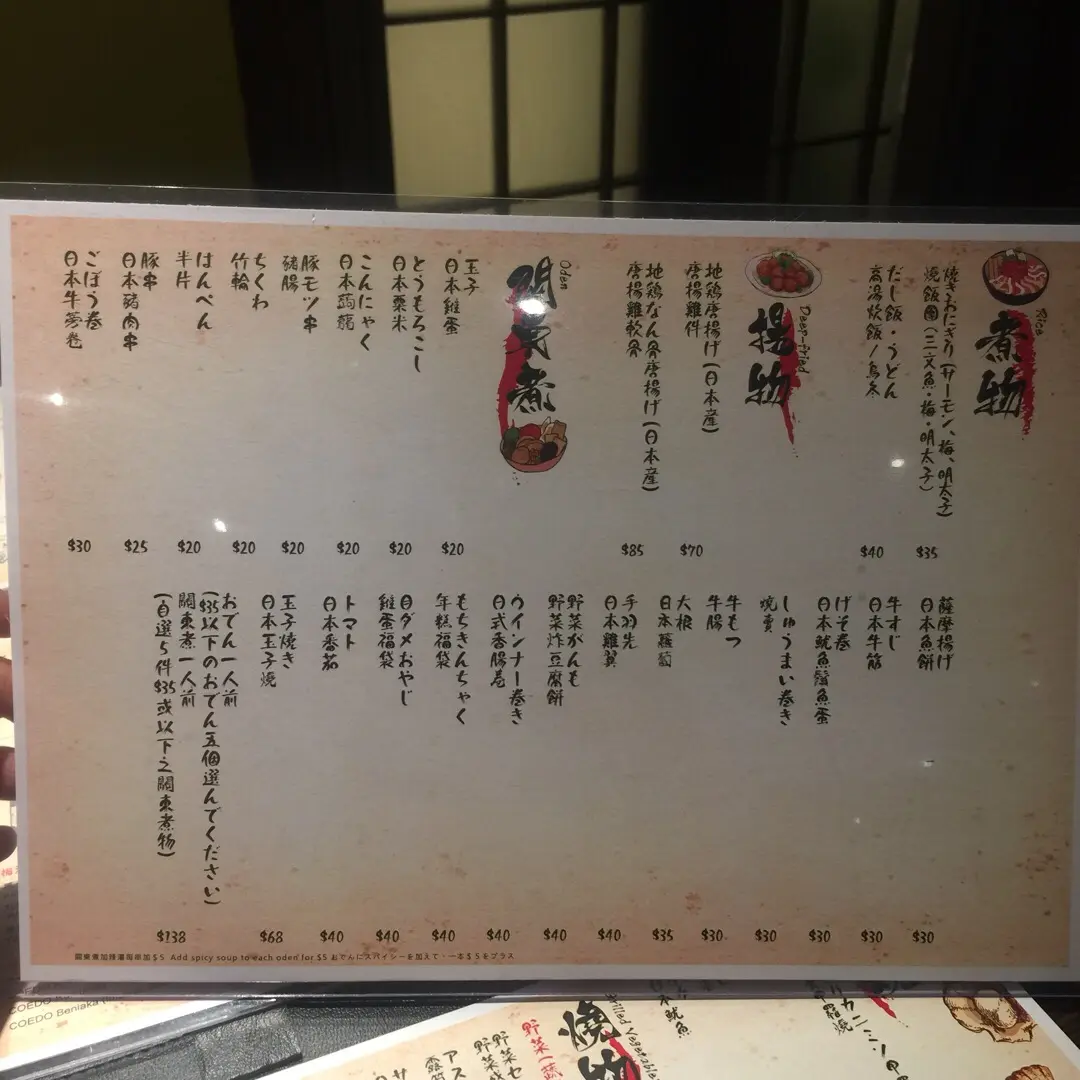 Rice
煮物
焼きおにぎり(サーモン、梅、明太子)
燒飯團(三文魚・梅・明太子)
$35
だし飯・うどん
高湯炊飯/烏冬
$40
Deep-fried
揚物
地鶏唐揚げ(日本産)
唐揚雞件
$70
地鶏なん骨唐揚げ(日本産)
唐揚雞軟骨
$85
Oden
關東煮
玉子
日本雞蛋
$20
とうもろこし
日本粟米
$20
こんにゃく
日本蒟蒻
$20
豚モツ串
豬腸
$20
ちくわ
竹輪
$20
はんぺん
半片
$20
豚串
日本豬肉串
$25
ごぼう巻
日本牛蒡卷
$30
薩摩揚げ
日本魚餅
$30
牛すじ
日本牛筋
$30
げそ巻
日本魷魚鬚魚蛋
$30
しゅうまい巻き
燒賣
$30
牛もつ
牛腸
$30
大根
日本蘿蔔
$35
手羽先
日本雞翼
$40
野菜がんも
野菜炸豆腐餅
$40
ウインナー巻き
日式香腸卷
$40
もちきんちゃく
年糕福袋
$40
日ダメおやじ
雞蛋福袋
$40
トマト
日本番茄
$40
玉子焼き
日本玉子燒
$68
おでん一人前
($35以下のおでん五個選んでください)
關東煮一人前
(自選5件$35或以下之關東煮物)
$138
關東煮加辣湯每串加$5 Add spicy soup to each oden for $5 おでんにスパイシーを加えて・一本$5をプラス
COEDO Beniaka
燒物
Grilled Vegetable
日本魷魚
カニミソ甲羅焼